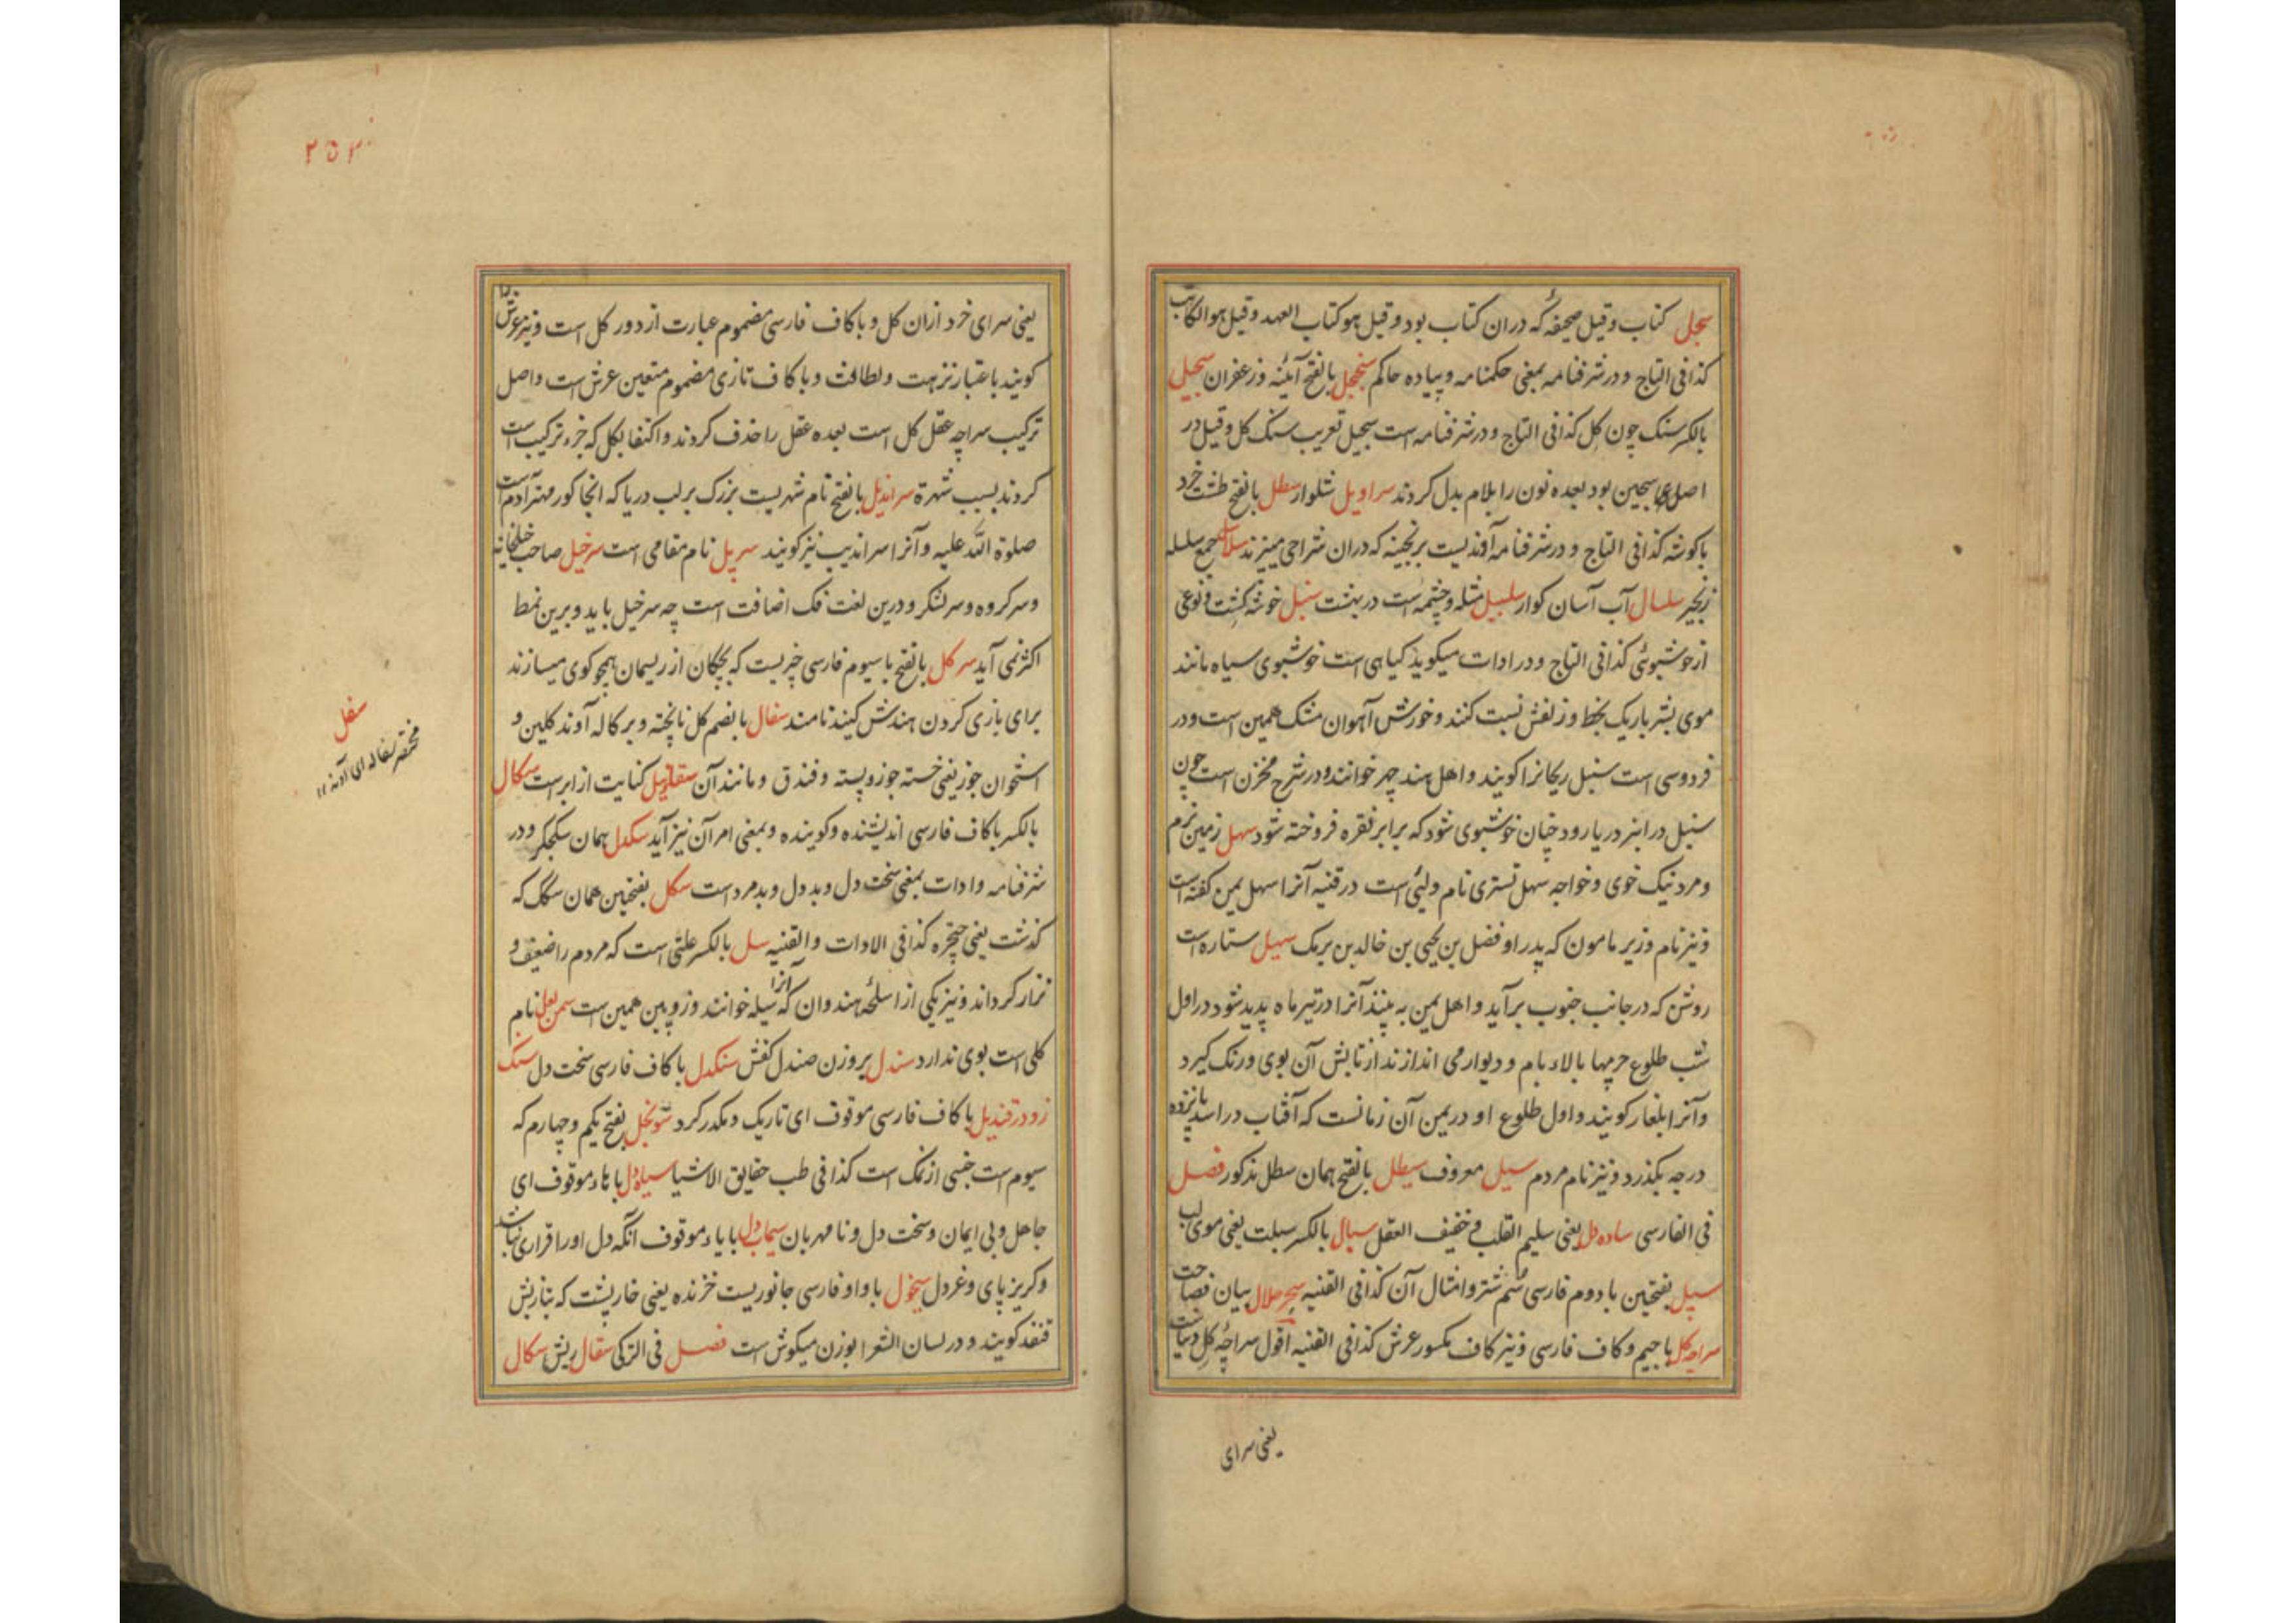 سجل کتاب و قیل صحیفهٔ که دران کتاب بود و قیل هو کتاب العهد و قیل هو الکاتب
کذا فی التاج و در شرفنامه بمعنی حکمنامه و پیاده حاکم سنجل بالفتح آئینه و زعفران سجیل
بالکسر سنک چون کل کذا فی التاج و در شرفنامه است سجیل تعریب سنک کل و قیل در
اصل سجین بود بعده نون را بلام بدل کردند سراویل شلوار سطل بالفتح طشت خرد
با کوشه کذا فی التاج و در شرفنامه آوندیست برنجینه که دران شراحی میبرند سلاسل جمع سلسله
زنجیر سلسال آب آسان کوار سلسبیل مثله و چشمه است در بهشت سنبل خوشه کشت و نوعی
از خوشبوئی کذا فی التاج و در ادات میکوید کیاهی است خوشبوی سیاه مانند
موی بشر باریک بخط و زلفش نسبت کنند و خورش آهوان مشک همین است و در
فردوسی است سنبل ریحانرا کویند و اهل هند چهر خوانند و در شرح مخزن است چون
سنبل در انبر دریا رود چنان خوشبوی شود که برابر نقره فروخته شود سهل زمین نرم
و مرد نیک خوی و خواجه سهل تستری نام ولیئی است در قنیه آنرا سهل یمین کفته است
و نیز نام وزیر مامون که پدر او فضل بن یحیی بن خالد بن برمک سهیل ستاره است
روشن که در جانب جنوب برآید و اهل یمن به بینند آنرا در تیر ماه پدید شود در اول
شب طلوع جرمها بالاء بام و دیوار می اندازند از تابش آن بوی و رنک کیرد
و آنرا بلغار کویند و اول طلوع او در یمن آن زمانست که آفتاب در اسد پانزده
درجه بکذرد و نیز نام مردم سیل معروف سیطل بالفتح همان سطل مذکور فصل
فی الفارسی ساده دل یعنی سلیم القلب و خفیف العقل سبال بالکسر سبلت یعنی موی لب
سپل بفتحین با دوم فارسی سم شتر و امثال آن کذا فی القنیه سحر حلال بیان فصاحت
سراچه کل با جیم و کاف فارسی و نیز کاف مکسور عرش کذا فی القنیه اقول سراچهٔ کل دنیا است
یعنی سرای
۲۵۳
یعنی سرای خرد ازان کل و با کاف فارسی مضموم عبارت از دور کل است و نیز عرش را
کویند باعتبار نزهت و لطافت و با کاف تازی مضموم متعین عرش است و اصل
ترکیب سراچه عقل کل است بعده عقل را حذف کردند و اکتفا بکل که جزء ترکیب است
کردند بسبب شهرة سراندیل بالفتح نام شهریست بزرک بر لب دریا که انجا کور مهتر آدم است
صلوة الله علیه و آنرا سراندیب نیز کویند سرپل نام مقامی است سرخیل صاحب خیلخانه
و سر کروه و سر لشکر و درین لغت فک اضافت است چه سر خیل باید و برین نمط
اکثر می آید سرکل بالفتح با سیوم فارسی چیزیست که بچکان از ریسمان همچو کوی میسازند
برای بازی کردن هندش کیند نامند سفال بالضم کل نا پخته و پرکاله آوند کلین و
استخوان جوز یعنی خسته جوز و پسته و فندق و مانند آن کنایت از ابر است سکال
بالکسر با کاف فارسی اندیشنده و کوینده و بمعنی امر آن نیز آید سکدل همان سکجکر و در
شرفنامه و ادات بمعنی سخت دل و بد دل و بد مرد است سکل بفتحین همان سکک که
کذشت یعنی حنجره کذا فی الادات و القنیه سل بالکسر علتی است که مردم را ضعیف و
نزار کرداند و نیز یکی از اسلحهٔ هندوان که آنرا سیله خوانند و زوبین همین است نام
کلی است بوی ندارد سندل بر وزن صندل کفش سنکدل با کاف فارسی سخت دل سنک
زود در قندیل با کاف فارسی موقوف ای تاریک و مکدر کرد سونجل بفتح یکم و چهارم که
سیوم است جنسی از نمک است کذا فی طب حقایق الاشیا سیاه دل با هاء موقوف ای
جاهل و بی ایمان و سخت دل و نا مهربان سیماب دل با باء موقوف آنکه دل او را قراری نباشد
و کریز پای و غردل سیخول با واو فارسی جانوریست خزنده یعنی خارپشت که بتازیش
قنفد کویند و در لسان الشعرا بوزن میکوش است فصل فی الترکی سقال ریش سکال
سفل
مختصر سفاله ای آوند ۱۱